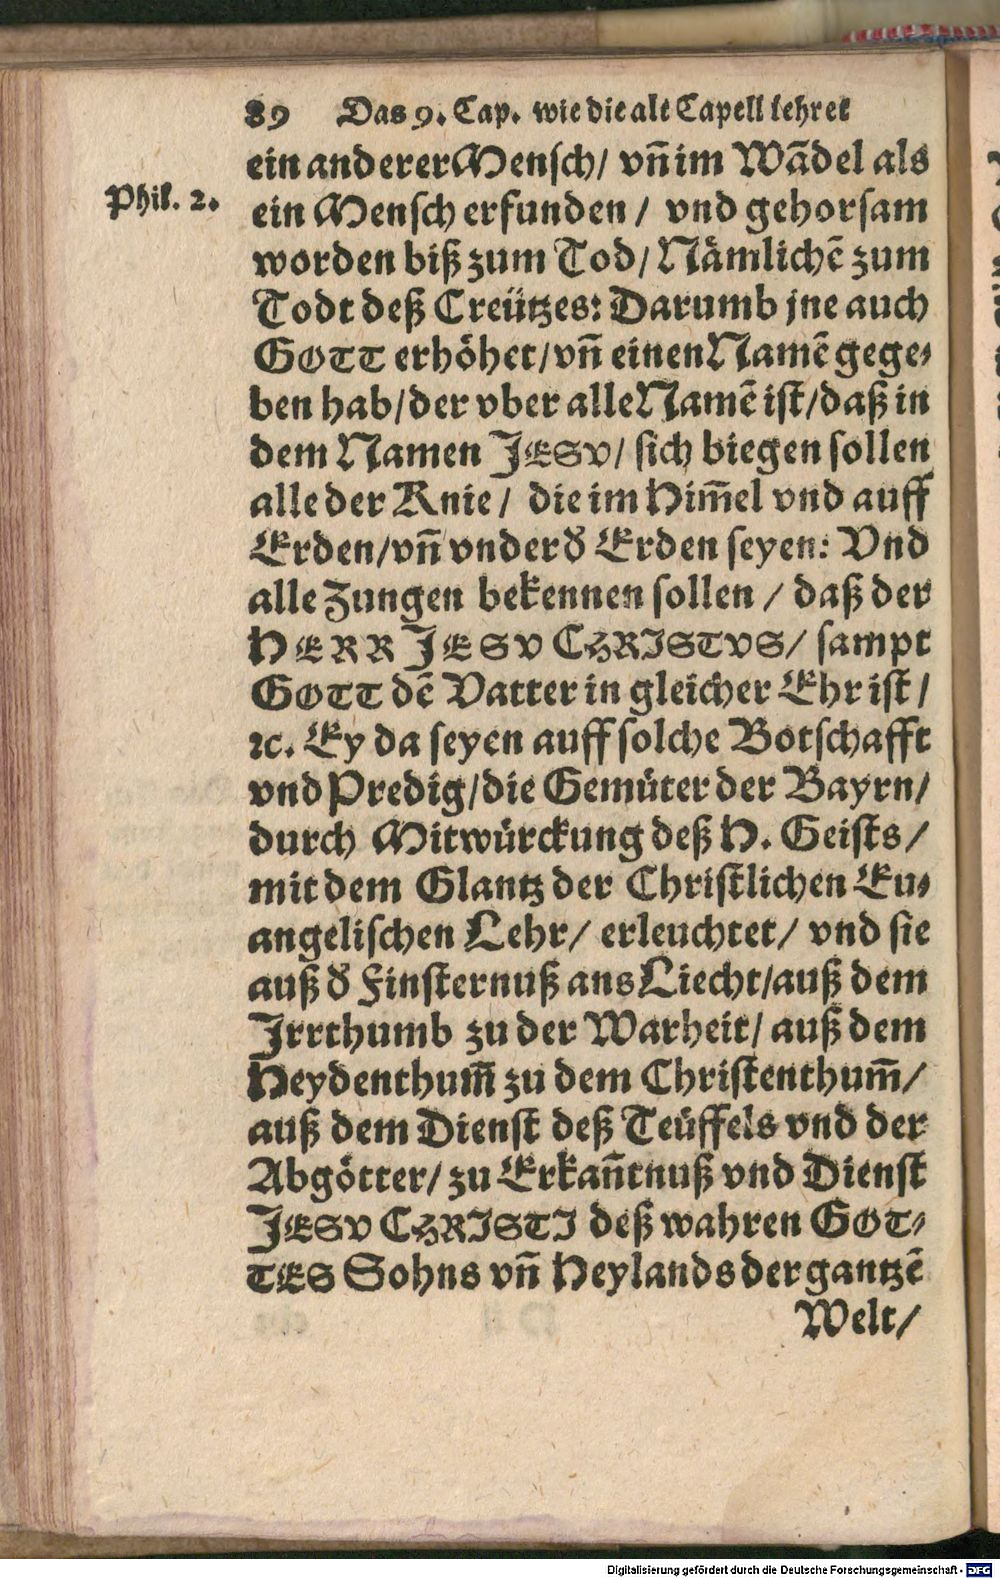 89 Das 9. Cap. wie die alt Capell lehret
ein anderer Mensch/ vñ im Wãdel als
Phil. 2.
ein Mensch erfunden / vnd gehorsam
worden biß zum Tod/ Nämlichẽ zum
Todt deß Creützes: Darumb jne auch
GOTT erhöhet/ vñ einen Namẽ gege-
ben hab/ der vber alle Namẽ ist/ daß in
dem Namen JESV/ sich biegen sollen
alle der Knie / die im Him̃el vnd auff
Erden/ vñ vnder d̕ Erden seyen: Vnd
alle Zungen bekennen sollen / daß der
HERR JESV CHRISTVS/ sampt
GOTT dẽ Vatter in gleicher Ehr ist /
ꝛc. Ey da seyen auff solche Botschafft
vnd Predig/ die Gemüter der Bayrn/
durch Mitwürckung deß H. Geists/
mit dem Glantz der Christlichen Eu-
angelischen Lehr/ erleuchtet/ vnd sie
auß d̕ Finsternuß ans Liecht/ auß dem
Irrthumb zu der Warheit/ auß dem
Heydenthum̃ zu dem Christenthum̃/
auß dem Dienst deß Teüffels vnd der
Abgötter/ zu Erkañtnuß vnd Dienst
JESV CHRISTI deß wahren GOT-
TES Sohns vñ Heylands der gantzẽ
Welt/
Digitalisierung gefördert durch die Deutsche Forschungsgemeinschaft - DFG